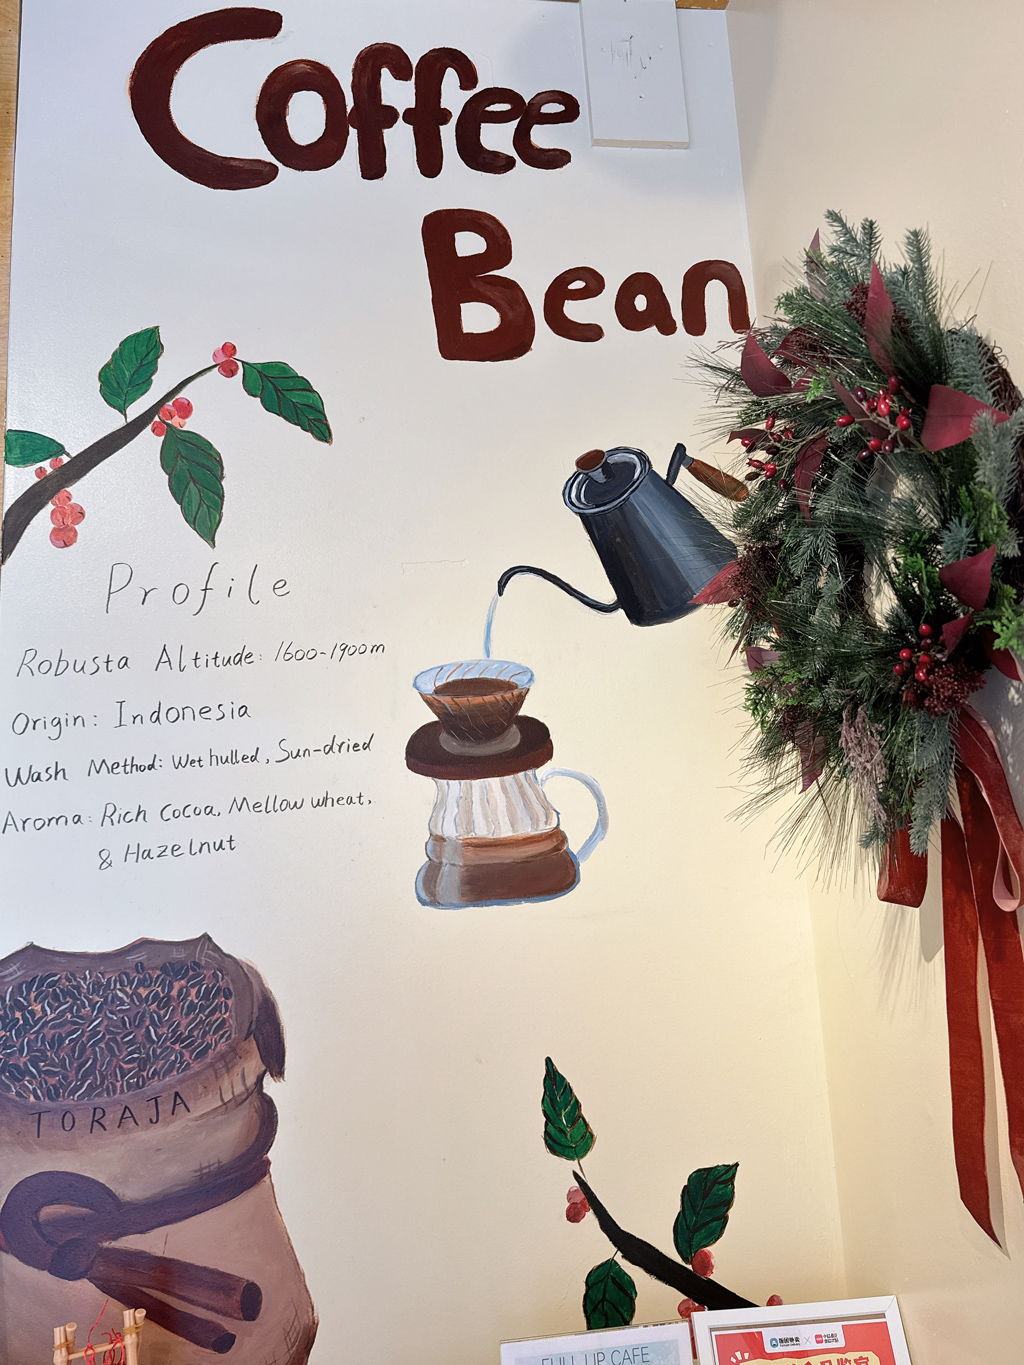 Coffee
Bean
Profile
Robusta Altitude: 1600-1900m
Origin: Indonesia
Wash Method: Wet hulled, Sun-dried
Aroma: Rich cocoa, Mellow wheat,
& Hazelnut
TORAJA
FULL UP CAFE